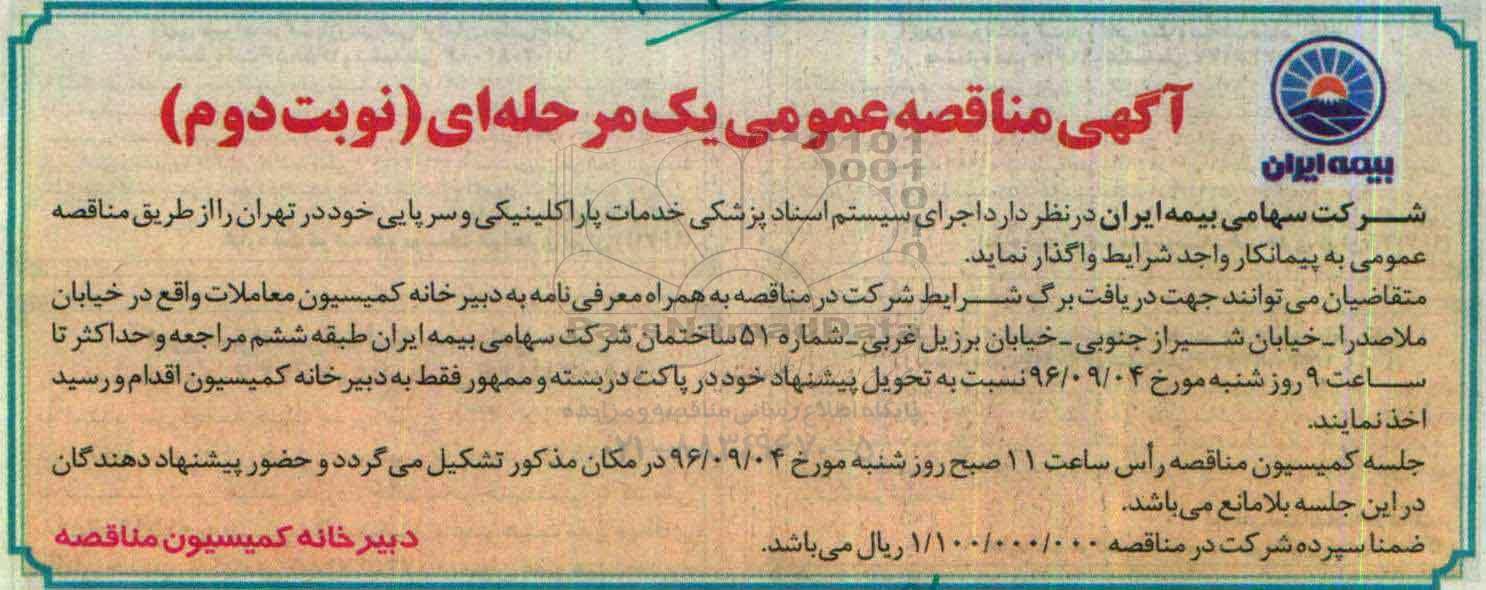 آگهی مناقصه عمومی یک مرحله‌ای (نوبت دوم)
بیمه ایران
شرکت سهامی بیمه ایران درنظر دارد اجرای سیستم اسناد پزشکی خدمات پاراکلینیکی و سرپایی خود در تهران را از طریق مناقصه
عمومی به پیمانکار واجد شرایط واگذار نماید.
متقاضیان می توانند جهت دریافت برگ شرایط شرکت در مناقصه به همراه معرفی نامه به دبیرخانه کمیسیون معاملات واقع در خیابان
ملاصدرا ـ خیابان شیراز جنوبی ـ خیابان برزیل غربی ـ شماره ۵۱ ساختمان شرکت سهامی بیمه ایران طبقه ششم مراجعه و حداکثر تا
ساعت ۹ روز شنبه مورخ ۹۶/۰۹/۰۴ نسبت به تحویل پیشنهاد خود در پاکت دربسته و ممهور فقط به دبیرخانه کمیسیون اقدام و رسید
اخذ نمایند.
جلسه کمیسیون مناقصه رأس ساعت ۱۱ صبح روز شنبه مورخ ۹۶/۰۹/۰۴ در مکان مذکور تشکیل می گردد و حضور پیشنهاد دهندگان
در این جلسه بلامانع می‌باشد.
ضمنا سپرده شرکت در مناقصه ۱/۱۰۰/۰۰۰/۰۰۰ ریال می‌باشد.
دبیرخانه کمیسیون مناقصه
ParsNamadData
پایگاه اطلاع رسانی مناقصه و مزایده